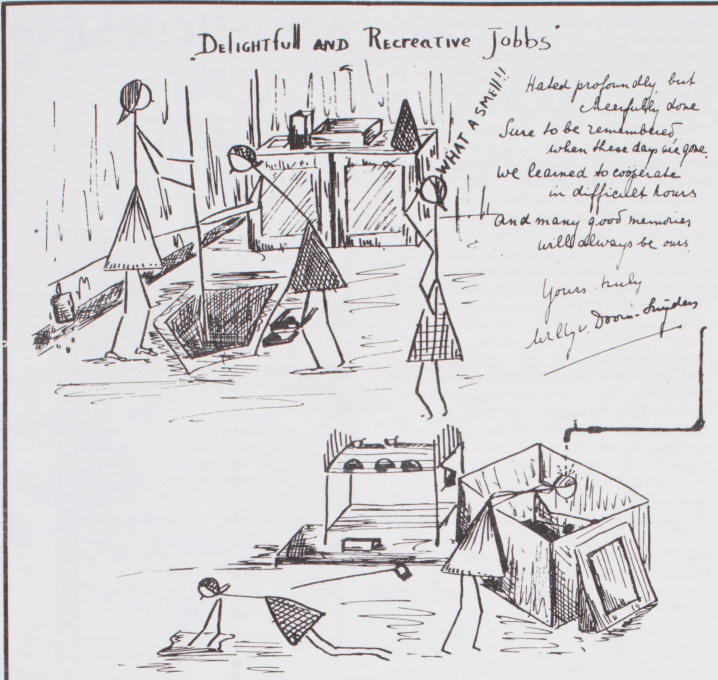 „Delightfull and Recreative Jobbs"
WHAT A SMELL!!
Hated profoundly, but
cheerfully done
Sure to be remembered,
when these day are gone.
we learned to coöperate
in difficult hours
and many good memories
will always be ours.
Yours truly
Willy v. Doorn-Snijders